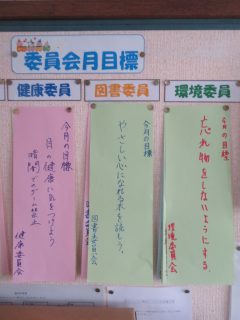 委員会月目標
健康委員
今月の目標
目の健康に気をつけよう
暗闇でのゲーム禁止
健康委員会
図書委員
今月の目標
やさしい心になれる本を読もう。
図書委員会
環境委員
今月の目標
忘れ物をしないようにする。
環境委員会